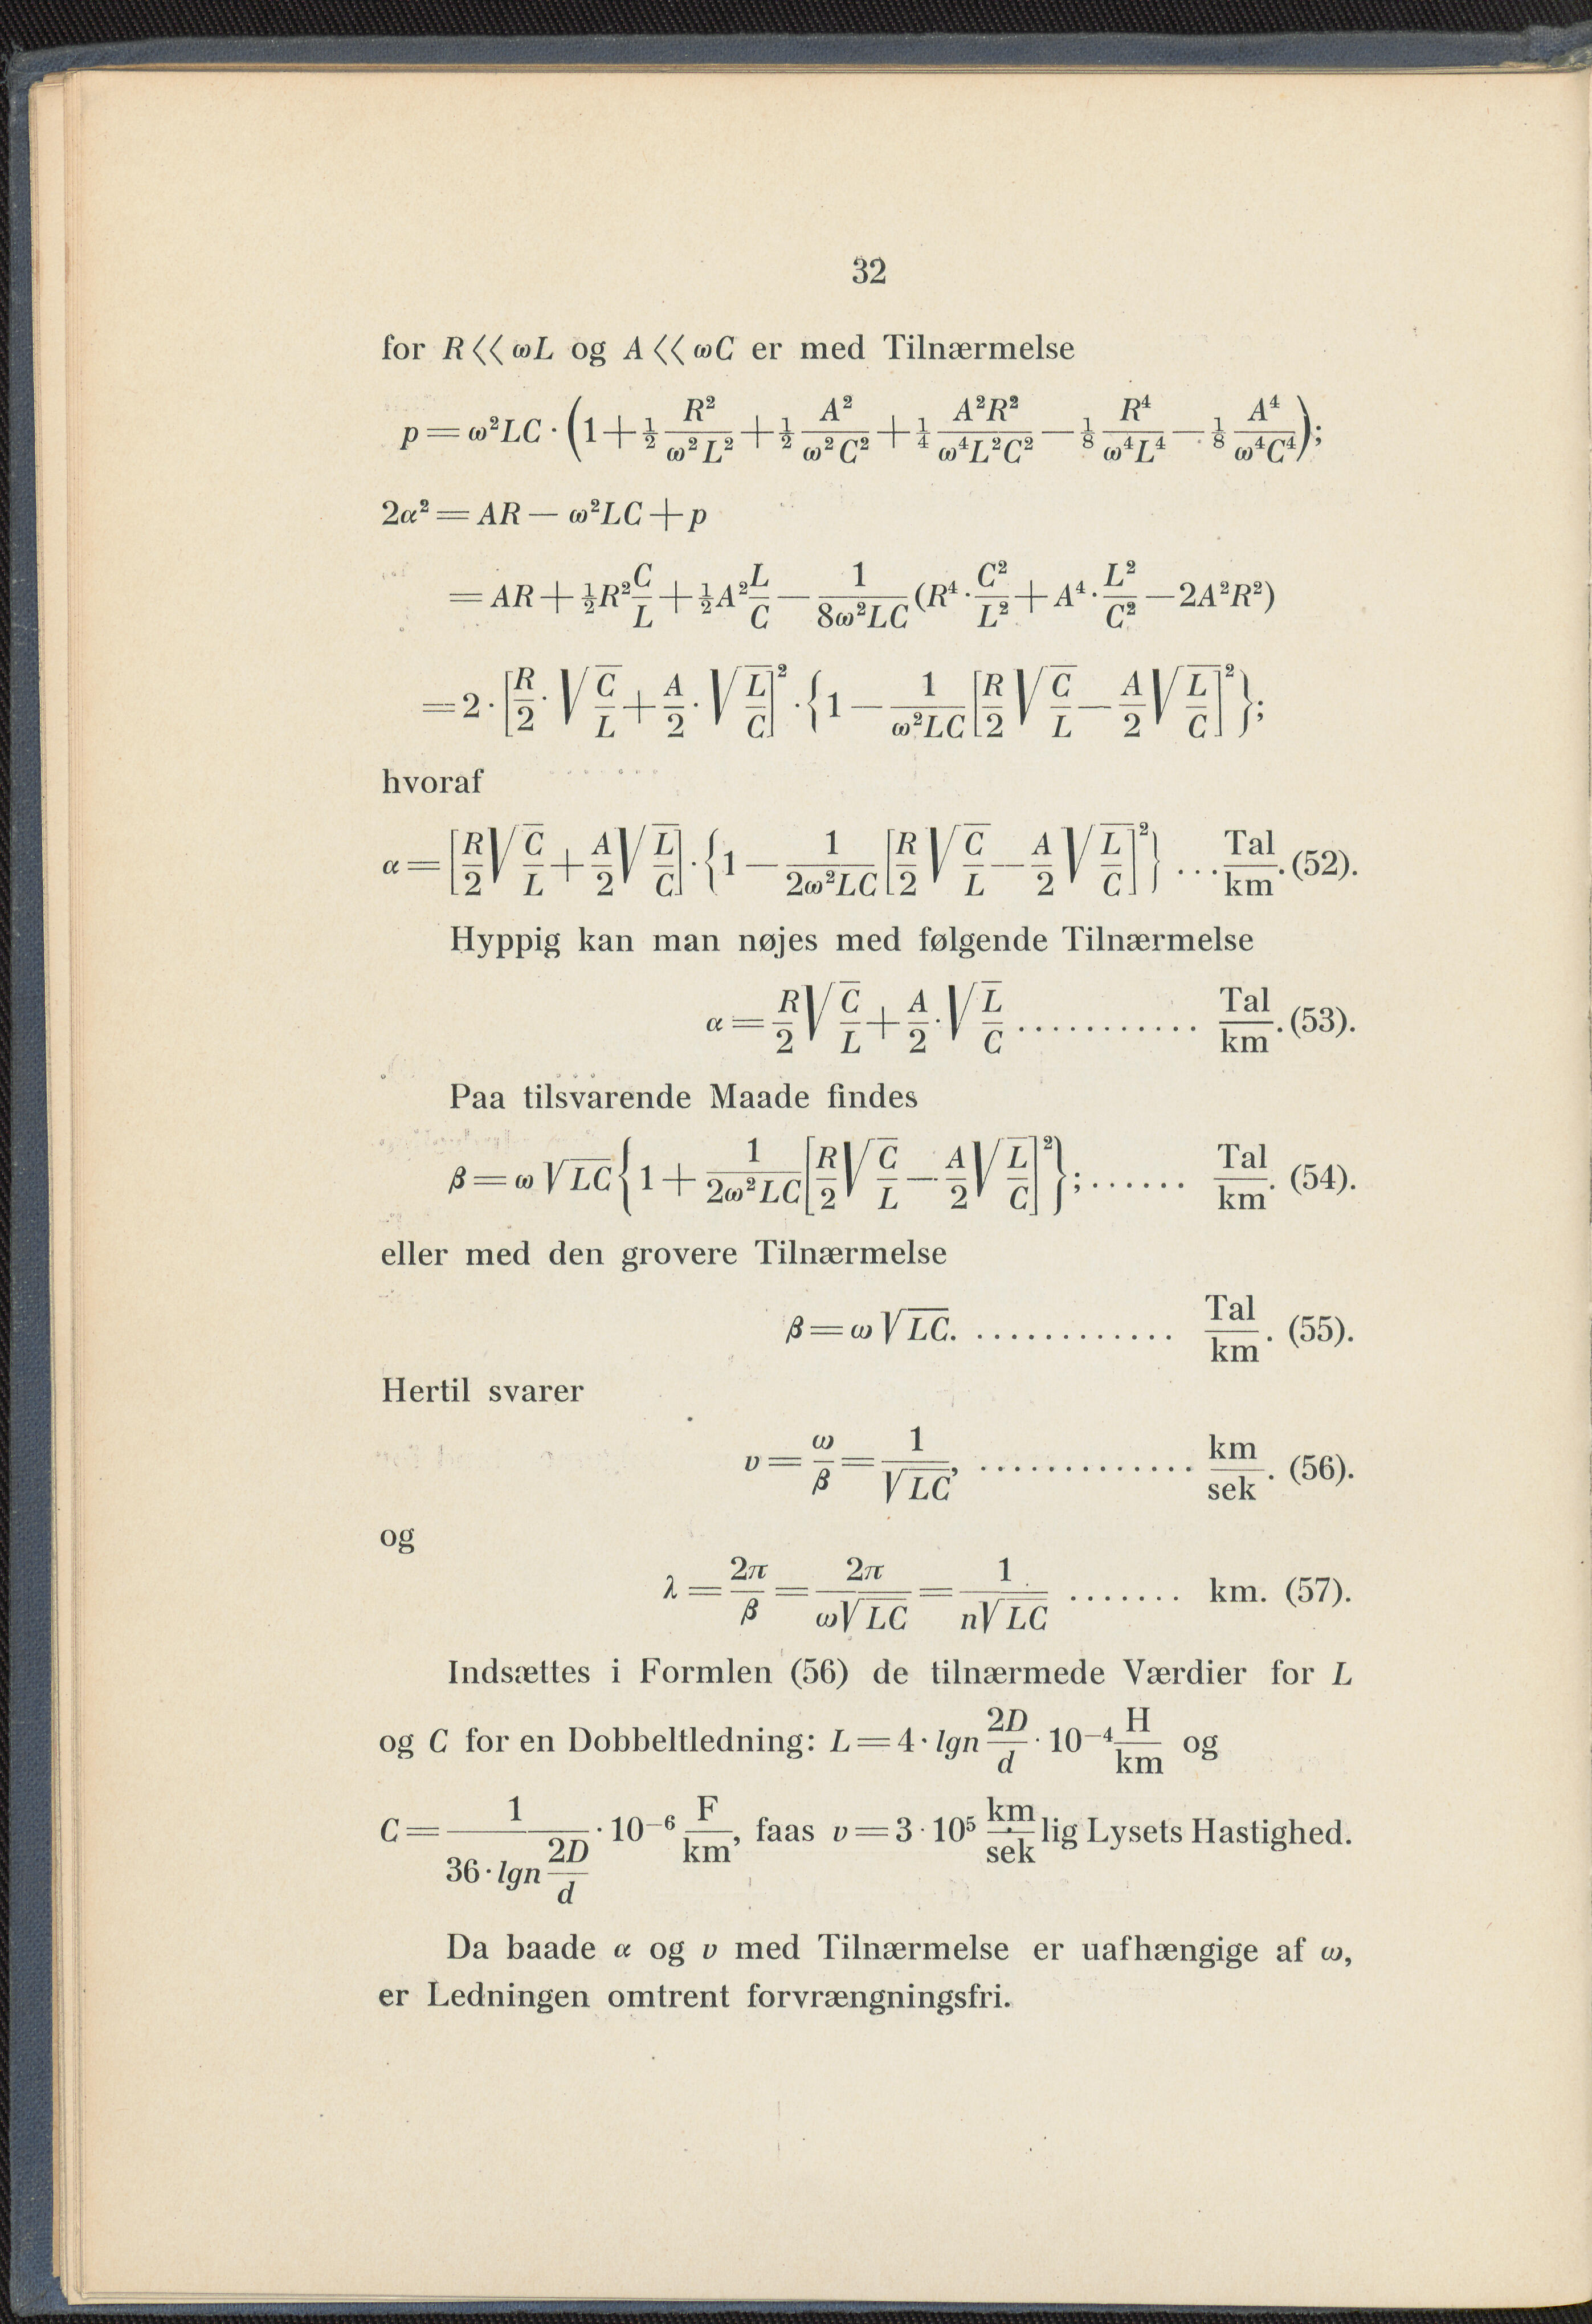 32
for R⟨⟨ωL og A⟨⟨ωC er med Tilnærmelse
p = ω²LC · (1 + ½ R²/ω²L² + ½ A²/ω²C² + ¼ A²R²/ω⁴L²C² — ⅛ R⁴/ω⁴L⁴ — ⅛ A⁴/ω⁴C⁴);
2α² = AR — ω²LC + p
= AR + ½R² C/L + ½A² L/C — 1/8ω²LC (R⁴ · C²/L² + A⁴ · L²/C² — 2A²R²)
= 2 · [R/2 · √C/L + A/2 · √L/C]² · {1 — 1/ω²LC [R/2 √C/L — A/2 √L/C]²};
hvoraf
α = [R/2 √C/L + A/2 √L/C] · {1 — 1/2ω²LC [R/2 √C/L — A/2 √L/C]²} ... Tal/km. (52).
Hyppig kan man nøjes med følgende Tilnærmelse
α = R/2 √C/L + A/2 · √L/C ........... Tal/km. (53).
Paa tilsvarende Maade findes
β = ω√LC {1 + 1/2ω²LC [R/2 √C/L — A/2 √L/C]²}; ...... Tal/km. (54).
eller med den grovere Tilnærmelse
β = ω√LC. ............ Tal/km. (55).
Hertil svarer
v = ω/β = 1/√LC, ............. km/sek. (56).
og
λ = 2π/β = 2π/ω√LC = 1/n√LC ....... km. (57).
Indsættes i Formlen (56) de tilnærmede Værdier for L
og C for en Dobbeltledning: L = 4 · lgn 2D/d · 10⁻⁴ H/km og
C = 1/36 · lgn 2D/d · 10⁻⁶ F/km, faas v = 3 · 10⁵ km/sek lig Lysets Hastighed.
Da baade α og v med Tilnærmelse er uafhængige af ω,
er Ledningen omtrent forvrængningsfri.